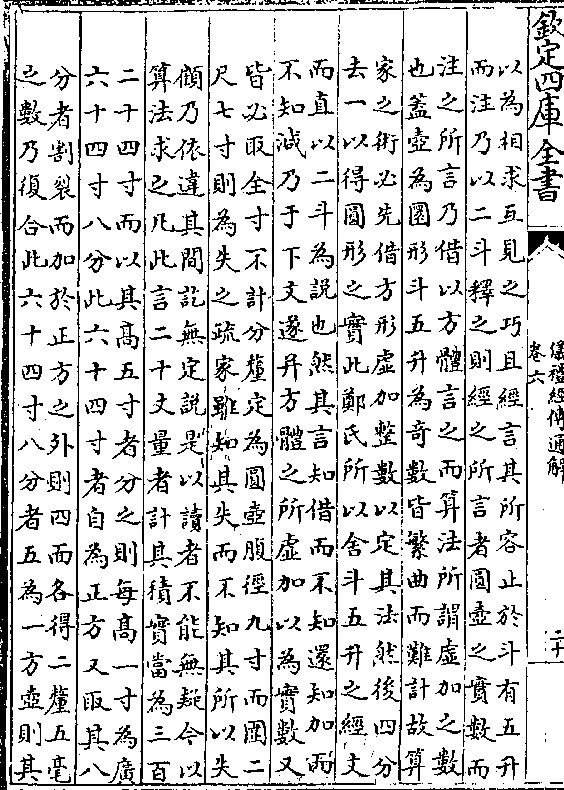 欽定四庫全書
儀禮經傳通解
卷六
二十
以為相求互見之巧且經言其所容止於斗有五升
而注乃以二斗釋之則經之所言者圓壺之實數而
注之所言乃借以方體言之而算法所謂虛加之數
也蓋壺為圜形斗五升為奇數皆繁曲而難計故算
家之術必先借方形虛加整數以定其法然後四分
去一以得圓形之實此鄭氏所以舍斗五升之經文
而直以二斗為說也然其言知借而不知還知加而
不知減乃于下文遂幷方體之所虛加以為實數又
皆必取全寸不計分釐定為圓壺腹徑九寸而圍二
尺七寸則為失之疏家雖知其失而不知其所以失
顧乃依違其間訖無定說是以讀者不能無疑今以
算法求之凡此言二十丈量者計其積實當為三百
二十四寸而以其高五寸者分之則每高一寸為廣
六十四寸八分此六十四寸者自為正方又取其八
分者割裂而加於正方之外則四而各得二釐五毫
之數乃復合此六十四寸八分者五為一方壺則其